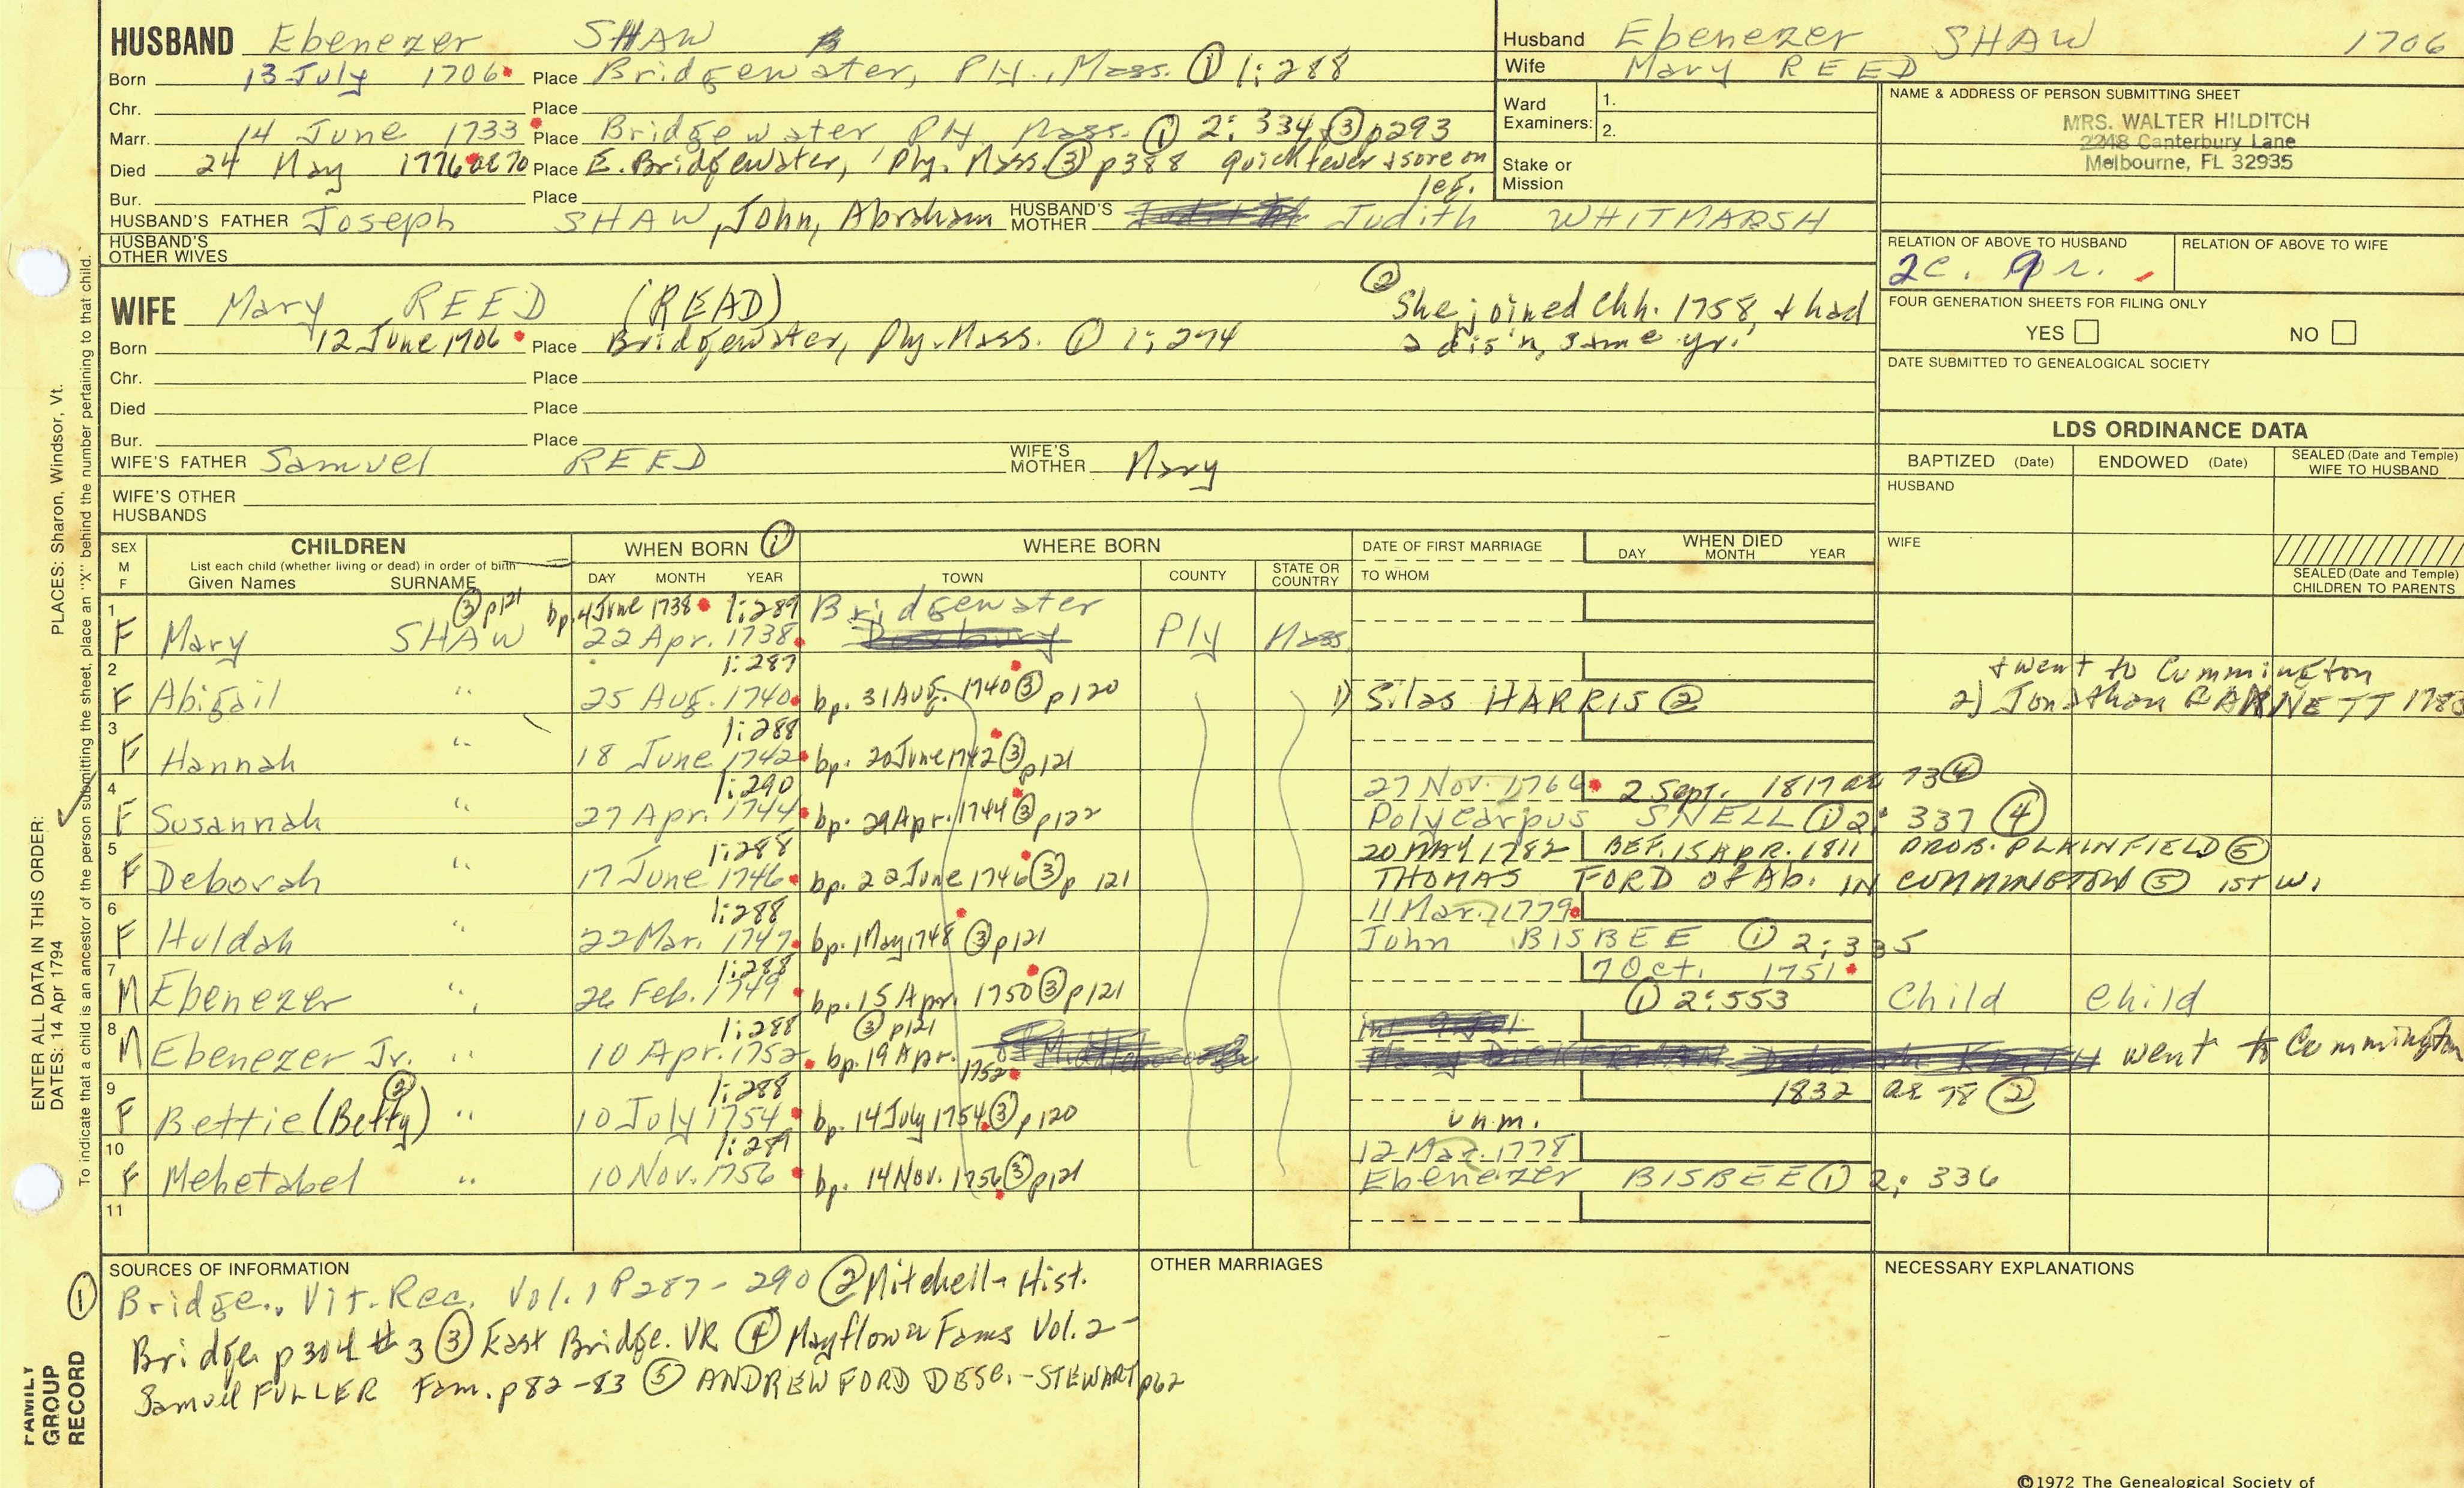 HUSBAND Ebenezer SHAW
Born 13 July 1706 Place Bridgewater, Ply. Mass. ① 1:288
Chr. Place
Marr. 14 June 1733 Place Bridgewater Ply. Mass. ① 2:334, ③ p293
Died 24 May 1776 ae 70 Place E. Bridgewater, Ply. Mass. ③ p388 quick fever & sore on leg.
Bur. Place
HUSBAND'S FATHER Joseph SHAW, John, Abraham HUSBAND'S MOTHER Judith WHITMARSH
HUSBAND'S OTHER WIVES
Husband Ebenezer SHAW 1706
Wife Mary REED
Ward Examiners: 1.
2.
Stake or Mission
NAME & ADDRESS OF PERSON SUBMITTING SHEET
MRS. WALTER HILDITCH
2248 Canterbury Lane
Melbourne, FL 32935
RELATION OF ABOVE TO HUSBAND RELATION OF ABOVE TO WIFE
FOUR GENERATION SHEETS FOR FILING ONLY
YES NO
DATE SUBMITTED TO GENEALOGICAL SOCIETY
WIFE Mary REED (READ)
② She joined Chh. 1758, & had
a dis'n, same yr.
Born 12 June 1706 Place Bridgewater, Ply. Mass. ① 1:274
Chr. Place
Died Place
Bur. Place
WIFE'S FATHER Samuel REED WIFE'S MOTHER Mary
WIFE'S OTHER HUSBANDS
LDS ORDINANCE DATA
BAPTIZED (Date) ENDOWED (Date) SEALED (Date and Temple) WIFE TO HUSBAND
HUSBAND
WIFE
SEALED (Date and Temple) CHILDREN TO PARENTS
SEX M F
CHILDREN
List each child (whether living or dead) in order of birth
Given Names SURNAME
WHEN BORN ①
DAY MONTH YEAR
WHERE BORN
TOWN COUNTY STATE OR COUNTRY
DATE OF FIRST MARRIAGE
TO WHOM
WHEN DIED
DAY MONTH YEAR
1 ③ p121 bp. 4 June 1738 1:289 Bridgewater
F Mary SHAW 22 Apr. 1738 Ply Mass.
2 1:287 & went to Cummington
F Abigail " 25 Aug. 1740 bp. 31 Aug. 1740 ③ p120 1) Silas HARRIS ② 2) Jonathan
3 1:288
F Hannah " 18 June 1742 bp. 20 June 1742 ③ p121
4 1:290 27 Nov. 1766 2 Sept. 1817 ae 73 ④
F Susannah " 27 Apr. 1744 bp. 29 Apr. 1744 ③ p122 Polycarpus SNELL ① 2:337 ④
5 1:288 20 MAY 1782 BEF. 15 APR. 1811 PROB. PLAINFIELD ⑤
F Deborah " 17 June 1746 bp. 22 June 1746 ③ p 121 THOMAS FORD of Ab. IN CUMMINGTON ⑤ 1ST W.
6 1:288 11 Mar. 1779
F Huldah " 22 Mar. 1747 bp. 1 May 1748 ③ p121 John BISBEE ① 2:335
7 1:288 7 Oct. 1751
M Ebenezer " 26 Feb. 1749 bp. 15 Apr. 1750 ③ p121 ① 2:553 Child Child
8 1:288 ③ p121
M Ebenezer Jr. " 10 Apr. 1752 bp. 19 Apr. 1752 went to Cummington
9 ② 1:288 1832 ae 78 ②
F Bettie (Betty) " 10 July 1754 bp. 14 July 1754 ③ p120 unm.
10 1:289 12 Mar. 1778
F Mehetabel " 10 Nov. 1756 bp. 14 Nov. 1756 ③ p121 Ebenezer BISBEE ① 2:336
11
SOURCES OF INFORMATION
① Bridge. Vit. Rec. Vol. 1 P287-290 ② Mitchell - Hist.
Bridge p304 #3 ③ East Bridge. VR ④ Mayflower Fams Vol. 2 -
Samuel FULLER Fam. p82-83 ⑤ ANDREW FORD DESC. - STEWART p62
OTHER MARRIAGES
NECESSARY EXPLANATIONS
©1972 The Genealogical Society of
ENTER ALL DATA IN THIS ORDER:
DATES: 14 Apr 1794 PLACES: Sharon, Windsor, Vt.
To indicate that a child is an ancestor of the person submitting the sheet, place an "X" behind the number pertaining to that child.
FAMILY GROUP RECORD